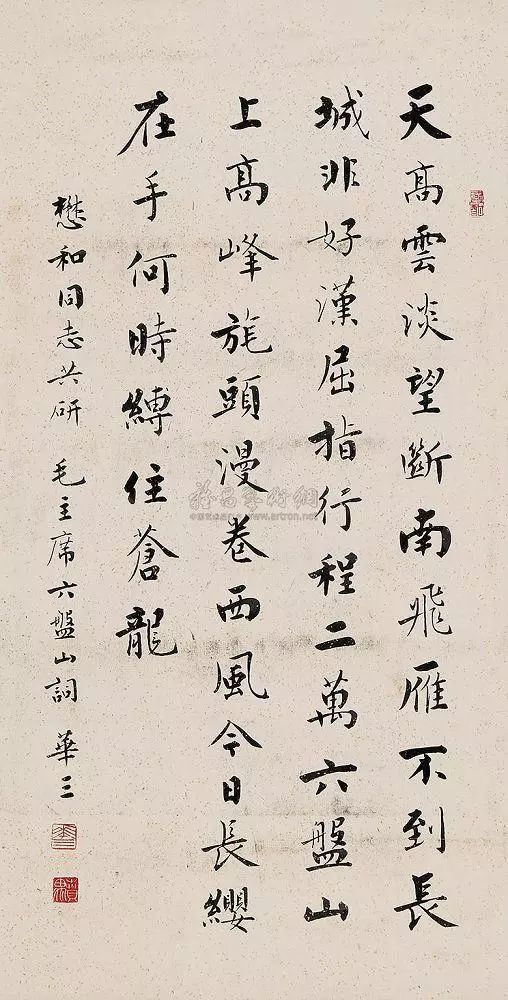 天高雲淡望斷南飛雁不到長
城非好漢屈指行程二萬六盤山
上高峰旄頭漫卷西風今日長纓
在手何時縛住蒼龍
懋和同志共研 毛主席六盤山詞 華三
www.artron.net